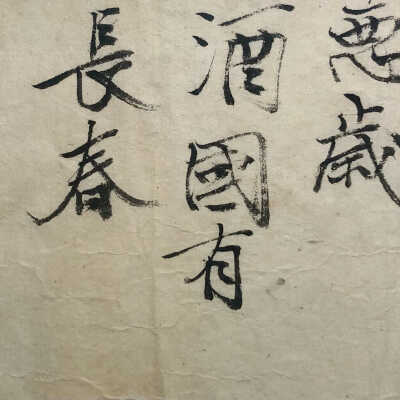 惡歲
酒國有
長春